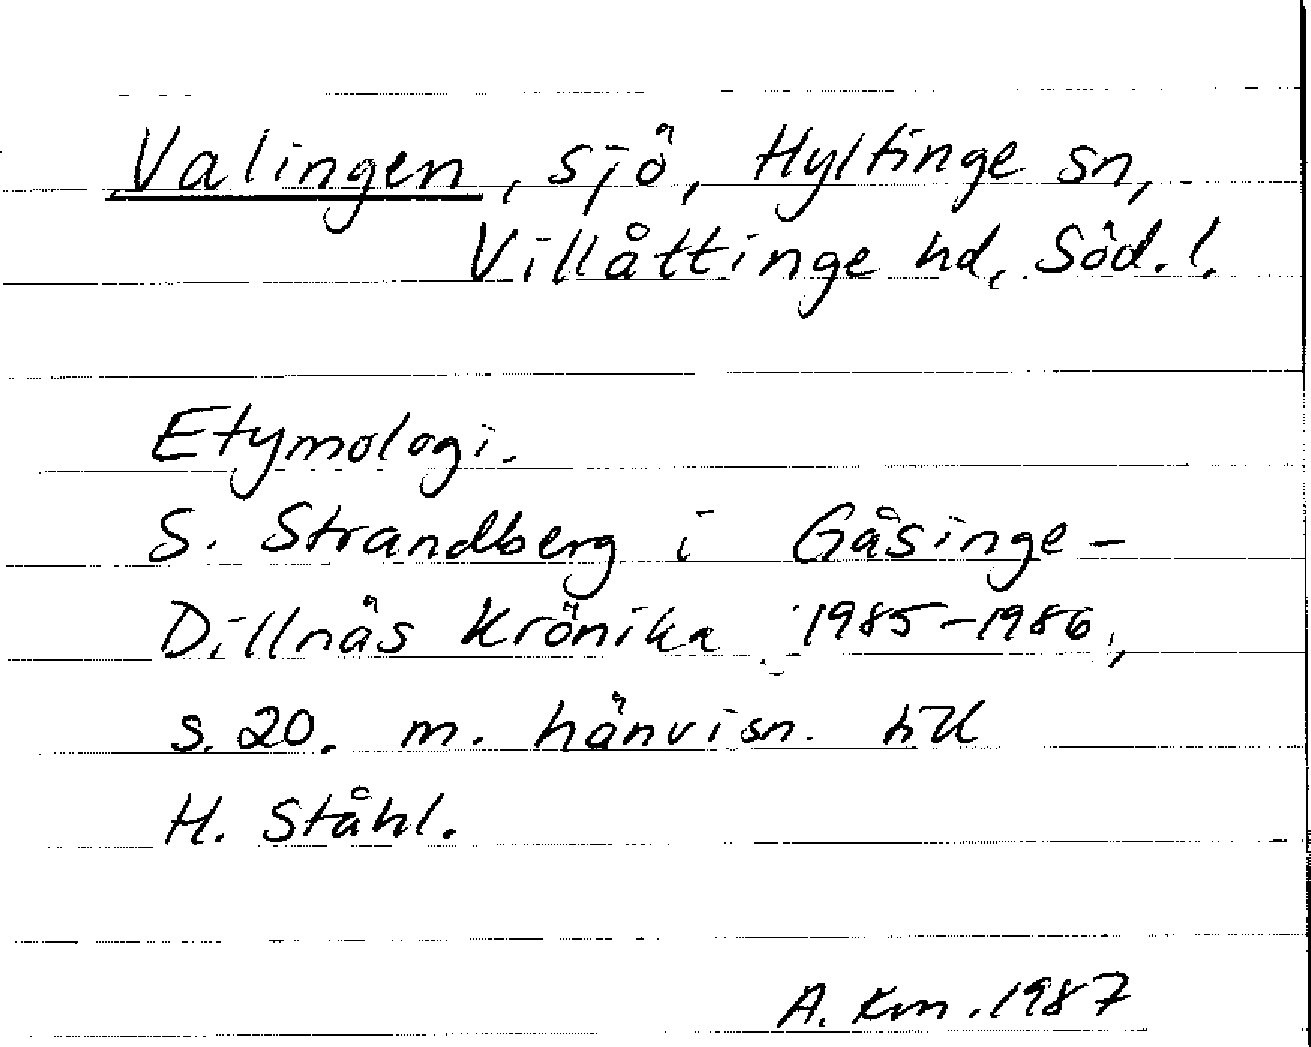 Valingen, sjö, Hyltinge sn,
Villåttinge hd, Söd. l.
Etymologi.
S. Strandberg i Gåsinge-
Dillnäs Krönika 1985-1986,
s. 20. m. hänvisn. till
H. Ståhl.
A. Km. 1987